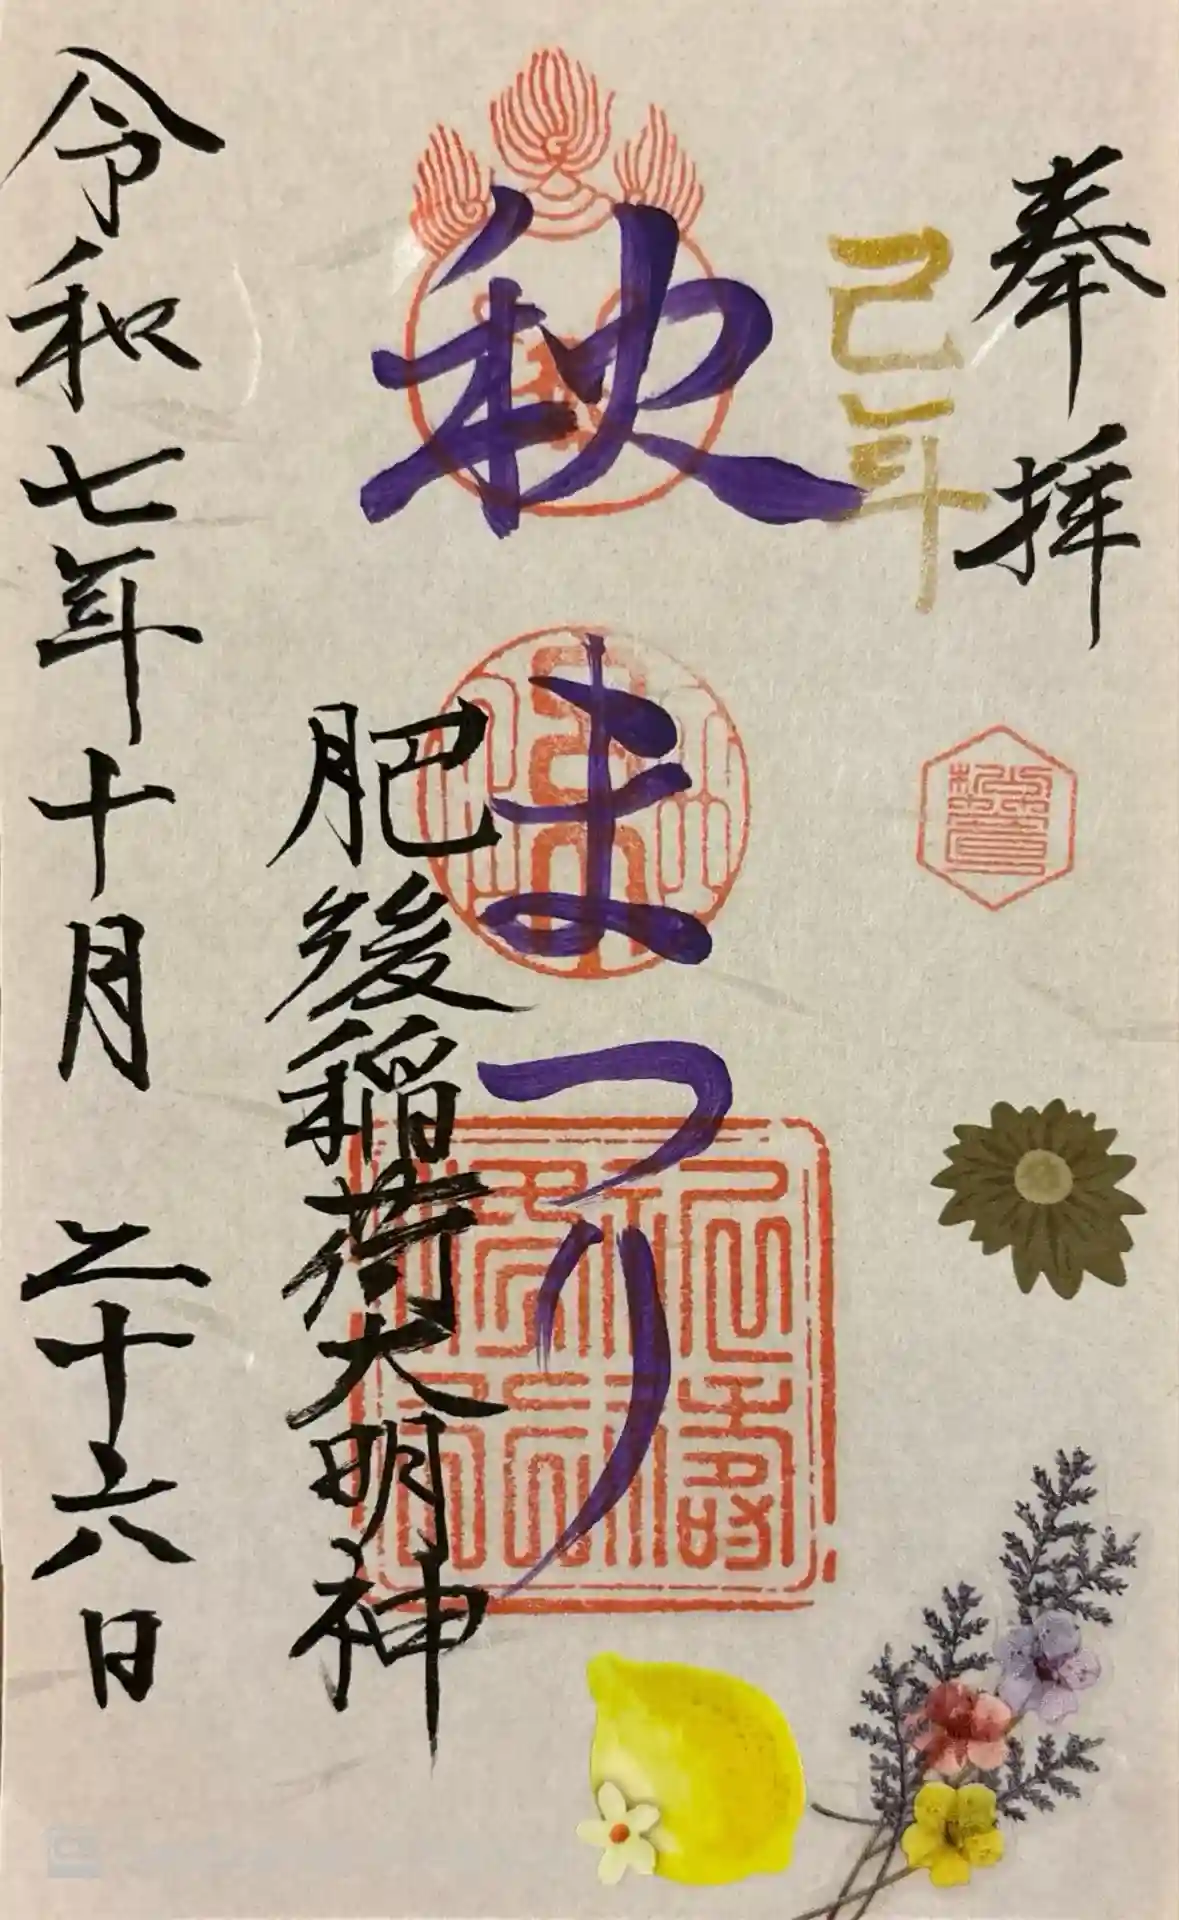 奉拝
己年
秋まつり
肥後稲荷大明神
令和七年十月二十六日